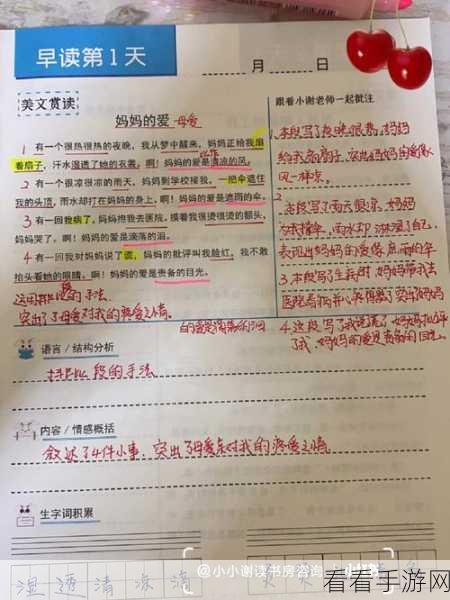 早读第1天
月 日
美文赏读
妈妈的爱 母爱
1 有一个很热很热的夜晚，我从梦中醒来，妈妈正给我扇
着扇子，汗水湿透了她的衣裳。啊！妈妈的爱是清凉的风。
2 有一个很凉很凉的雨天，妈妈到学校接我，一把伞遮住
我的头顶，雨水却打在妈妈的身上。啊！妈妈的爱是遮雨的伞。
3 有一回我病了，妈妈抱我去医院，摸着我很烫很烫的额头，
妈妈哭了。啊！妈妈的爱是滴落的泪。
4 有一回我对妈妈说了谎，妈妈的批评叫我脸红，我不敢
抬头看她的眼睛。啊！妈妈的爱是责备的目光。
突出了母爱对我的疼爱之情。
跟着小谢老师一起批注
1.本段写了夜晚很热，妈妈
给我扇扇子，突出妈妈的爱像
风一样凉。
2.本段写了雨天很凉，妈妈
为我撑伞，雨水却淋湿了自己，
表现出妈妈的爱像遮雨的伞
3.本段写了生病时，妈妈带我去
4.这段写了我说谎了，妈妈批评
了我，妈妈的爱是责备的目光。
语言/结构分析
段的手法
内容/情感概括
叙述了4件小事，突出了母爱对我的疼爱之情
生字词积累
湿 透 清 凉 滴
@小小谢读书房咨询
看看手游网